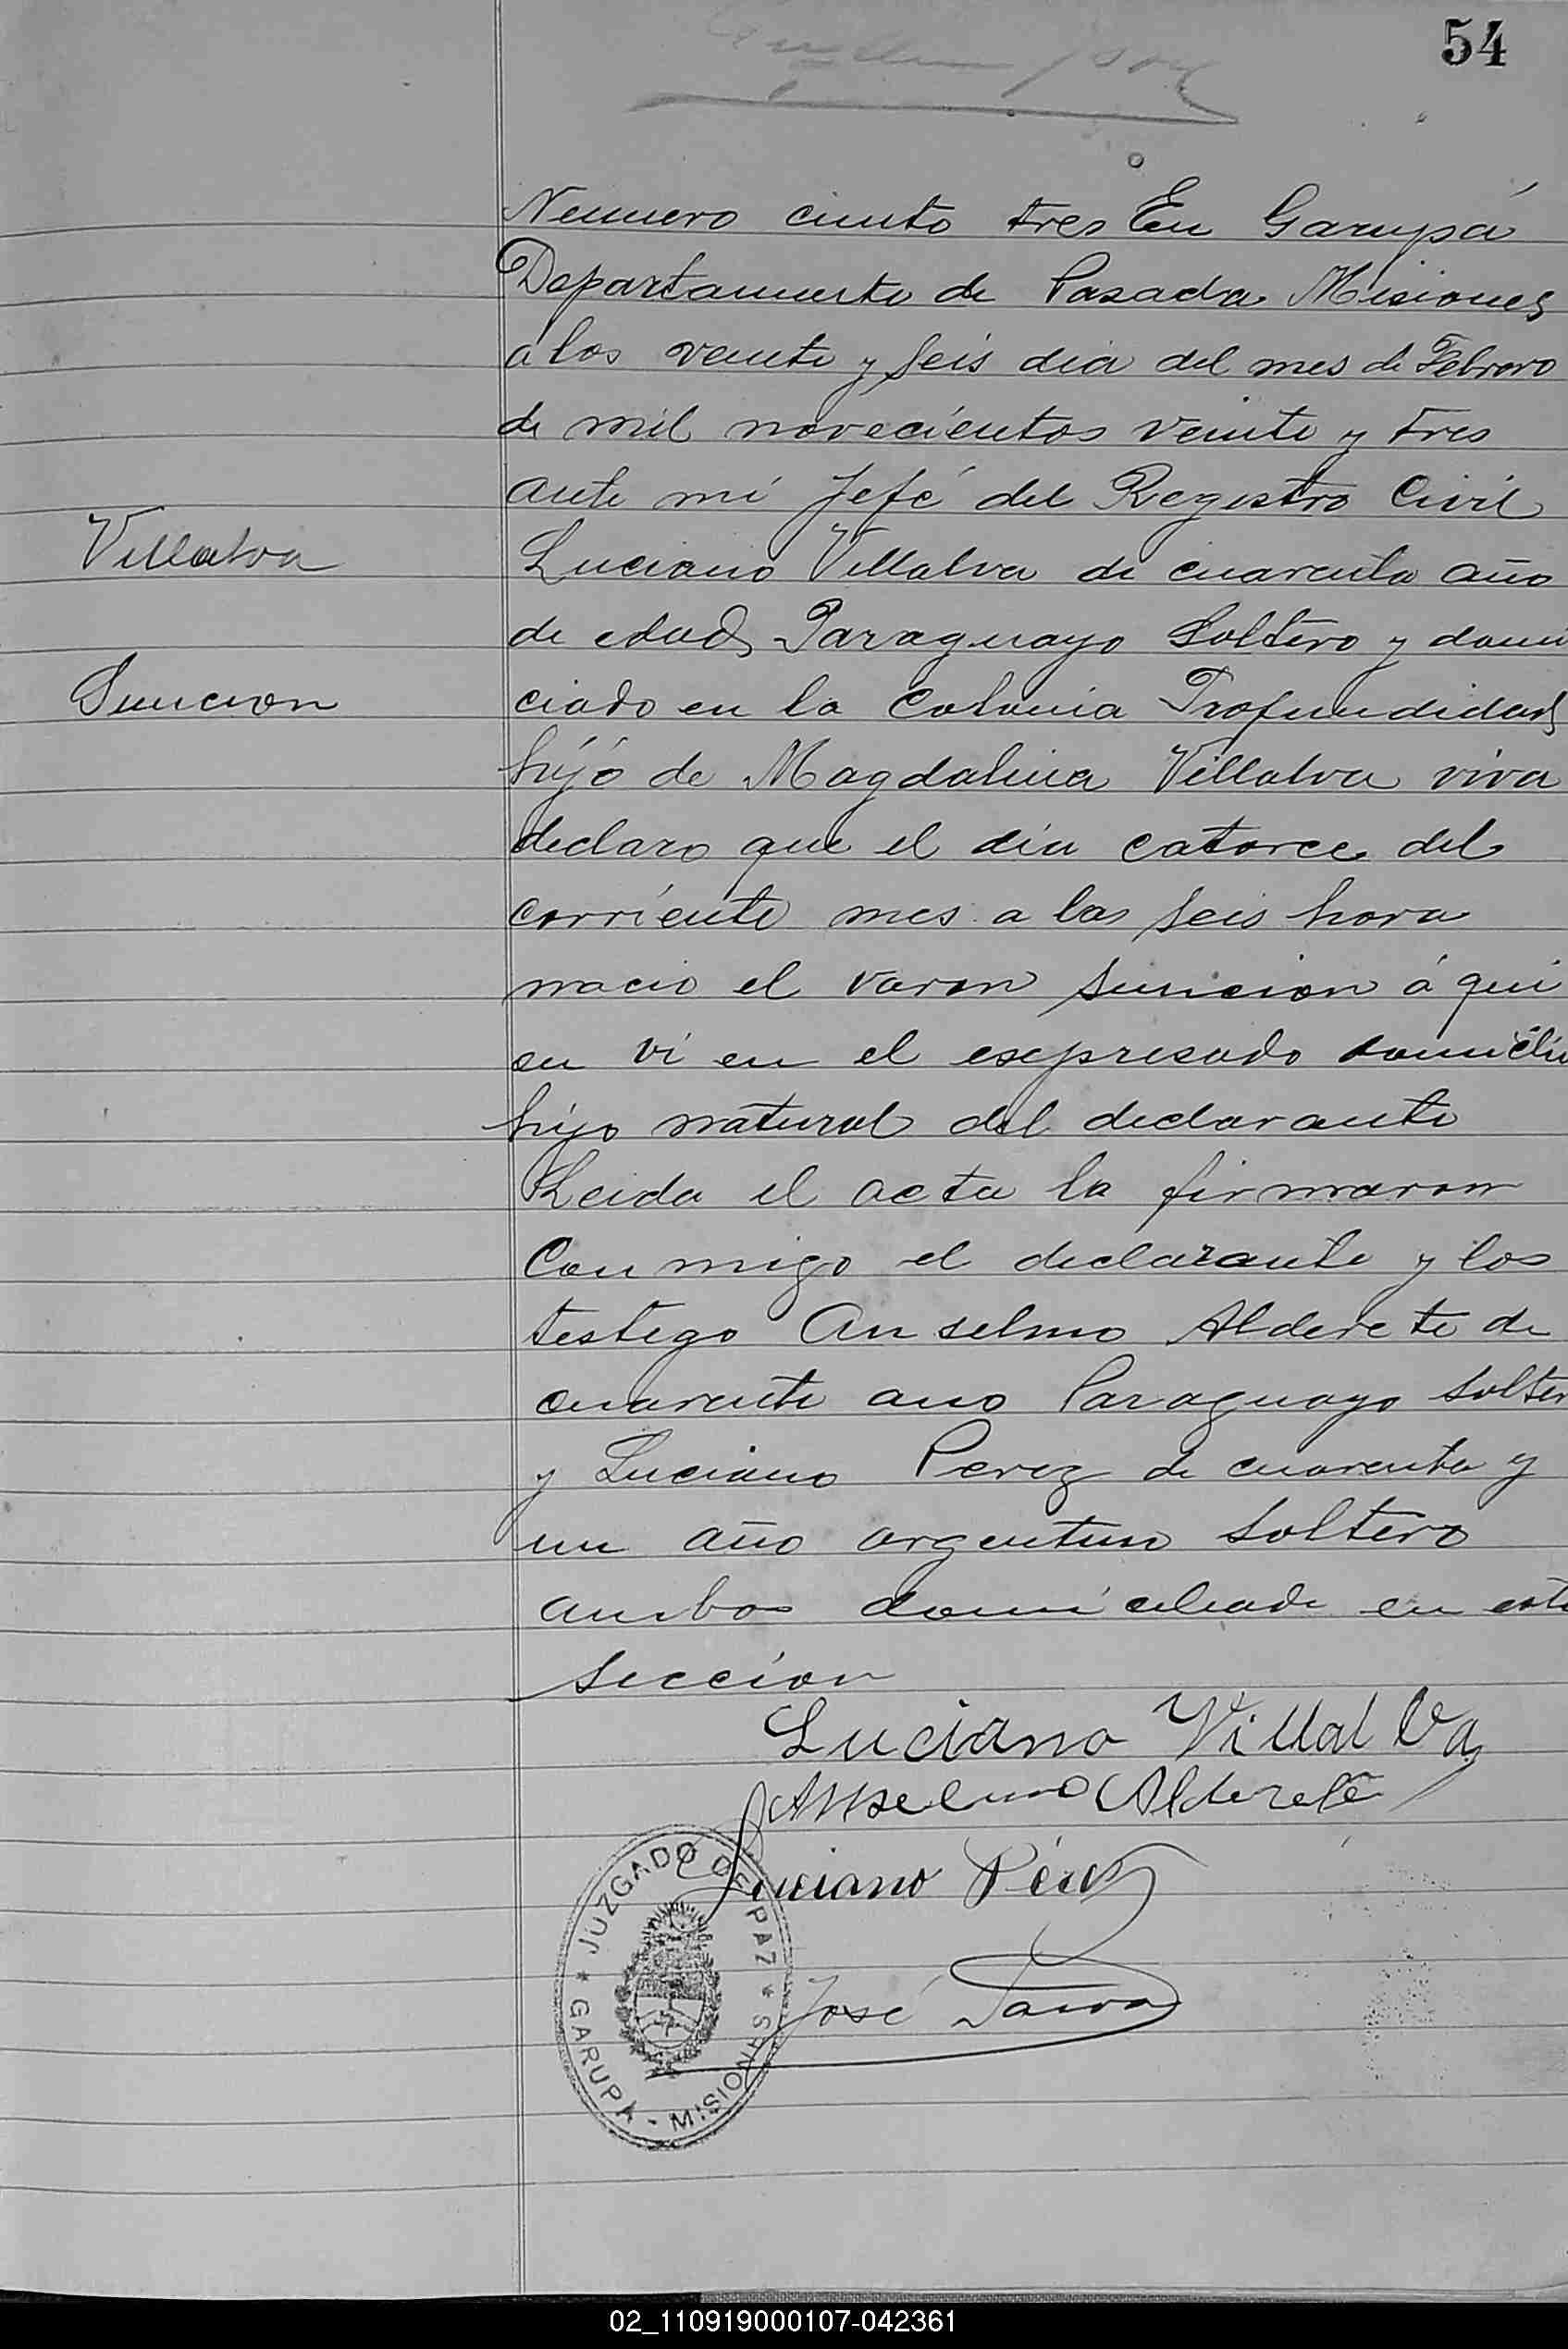 54
Numero ciento tres En Garupá
Departamento de Pasada Misiones
a los veinte y seis dia del mes de Febrero
de mil novecientos veinte y tres
ante mi Jefe del Registro Civil
Villalva
Luciano Villalva de cuarenta año
de edad Paraguayo Soltero y domi
Suncion
ciado en la Colonia Profundidad
hijo de Magdalina Villalva viva
declaro que el dia catorce del
corriente mes a las seis hora
nacio el varon Suncion á qui
en vi en el esepresado domicilio
hijo natural del declarante
Leida el acta la firmaron
Con migo el declarante y los
testigo Anselmo Alderete de
cuarente ano Paraguayo solter
y Luciano Perez de cuarenta y
un año argentino Soltero
ambos domiciliado en esta
seccion
Luciano Villalva
Anselmo Alderete
Luciano Pérez
José
JUZGADO DE PAZ * GARUPÁ - MISIONES *
02_110919000107-042361